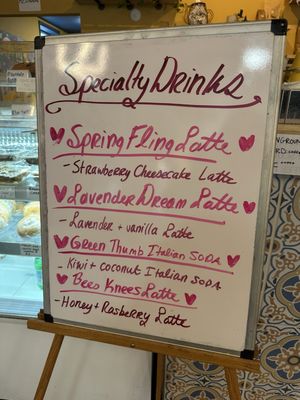 Specialty Drinks
Spring Fling Latte
- Strawberry Cheesecake Latte
Lavender Dream Latte
- Lavender + vanilla Latte
Green Thumb Italian Soda
- Kiwi + coconut Italian Soda
Bees Knees Latte
- Honey + Rasberry Latte